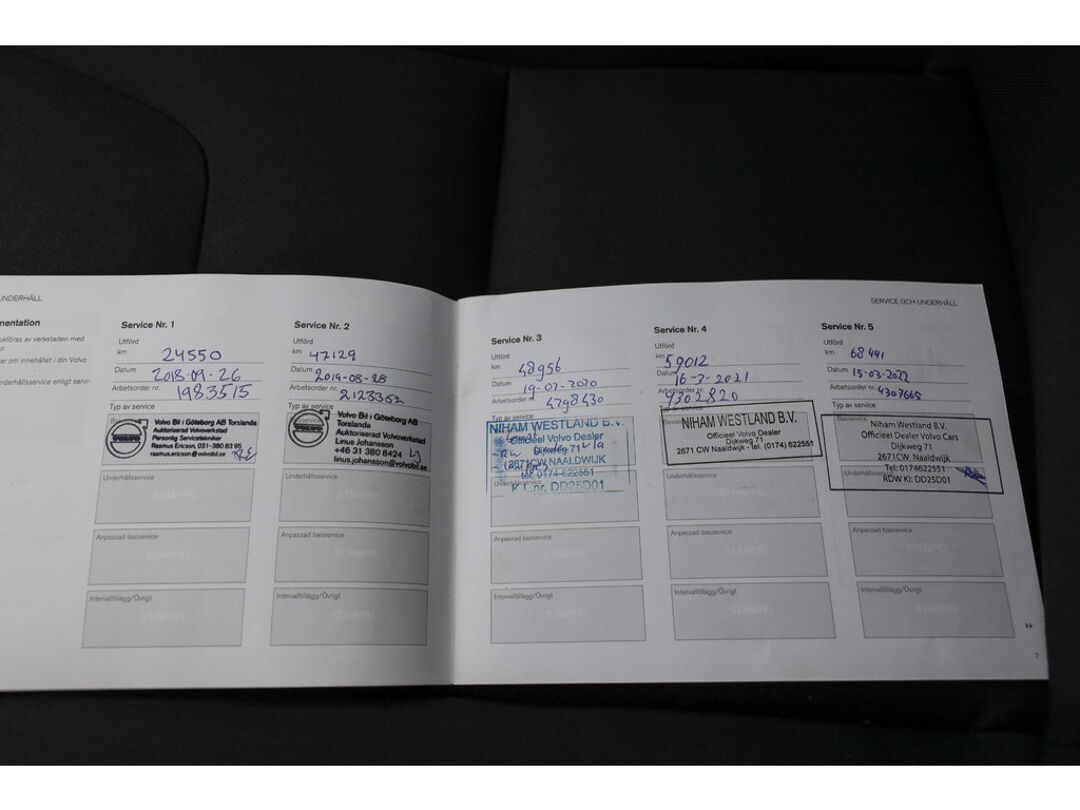 UNDERHÅLL
mentation
ckförss av verkstaden med
ur.
ar om innehållet i din Volvo
nderhållsservice enligt servi-
Service Nr. 1
Utförd
km 24550
Datum 2018-09-26
Arbetsorder nr. 1983575
Typ av service
Volvo Bil i Göteborg AB Torslanda
Auktoriserad Volvoverkstad
Personlig Servicetekniker
Rasmus Ericson, 031-380 83 95
rasmus.ericson@volvobil.se
Underhållsservice
STÄMPEL
Anpassad basservice
STÄMPEL
Intervalltillägg/Övrigt
STÄMPEL
Service Nr. 2
Utförd
km 47129
Datum 2019-08-28
Arbetsorder nr. 2123362
Typ av service
Volvo Bil i Göteborg AB
Torslanda
Auktoriserad Volvoverkstad
Linus Johansson
+46 31 380 8424
linus.johansson@volvobil.se
Underhållsservice
STÄMPEL
Anpassad basservice
STÄMPEL
Intervalltillägg/Övrigt
STÄMPEL
SERVICE OCH UNDERHÅLL
Service Nr. 3
Utförd
km 48956
Datum 19-02-2020
Arbetsorder 4298430
Typ av service
NIHAM WESTLAND B.V.
Officieel Volvo Dealer
Dijkweg 71
2671CW NAALDWIJK
tel. 0174-622551
K.I. nr. DD25D01
Anpassad basservice
STÄMPEL
Intervalltillägg/Övrigt
STÄMPEL
Service Nr. 4
Utförd
km 59012
Datum 16-3-2021
Arbetsorder nr. 9302820
NIHAM WESTLAND B.V.
Officieel Volvo Dealer
Dijkweg 71
2671 CW Naaldwijk - tel. (0174) 622551
Underhållsservice
STÄMPEL
Anpassad basservice
STÄMPEL
Intervalltillägg/Övrigt
STÄMPEL
Service Nr. 5
Utförd
km 68441
Datum 15-03-2022
Arbetsorder nr. 4307665
Typ av service
Basservice
Niham Westland B.V.
Officieel Dealer Volvo Cars
Dijkweg 71
2671CW Naaldwijk
Tel: 0174622551
RDW KI: DD25D01
Underhållsservice
STÄMPEL
Anpassad basservice
STÄMPEL
Intervalltillägg/Övrigt
STÄMPEL
7